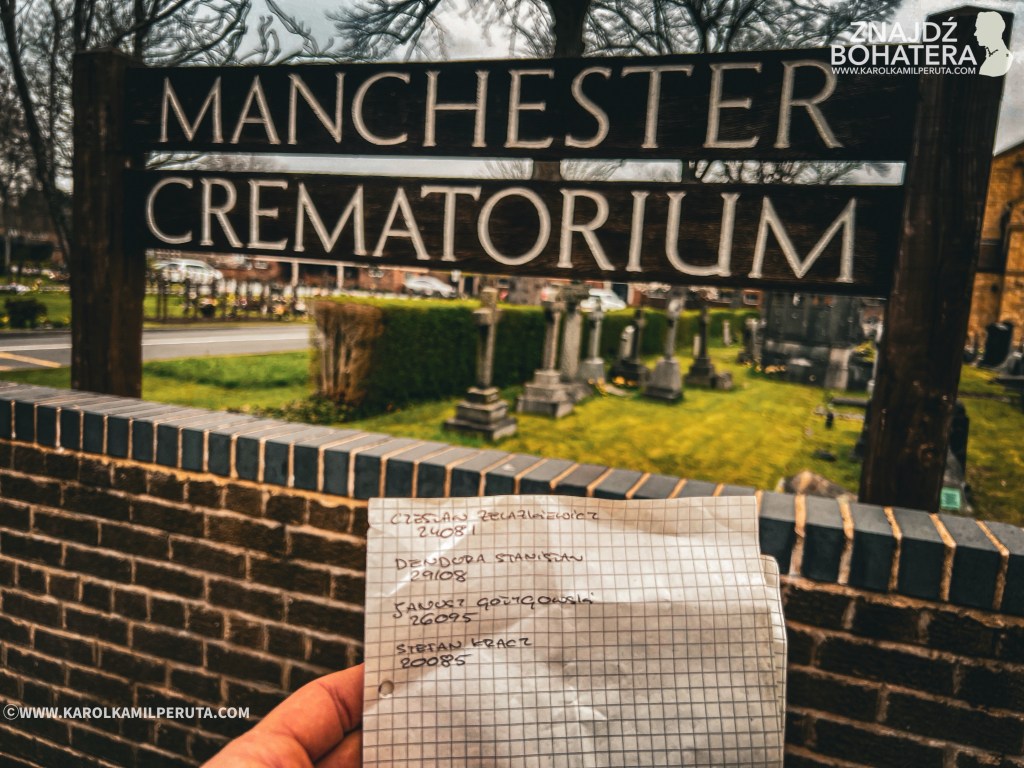 ZNAJDŹ
BOHATERA
WWW.KAROLKAMILPERUTA.COM
MANCHESTER
CREMATORIUM
CZESŁAW ŻELAZKIEWICZ
24081
DENDURA STANISŁAW
29108
JANUSZ
26095
STEFAN KRACZ
20085
©WWW.KAROLKAMILPERUTA.COM